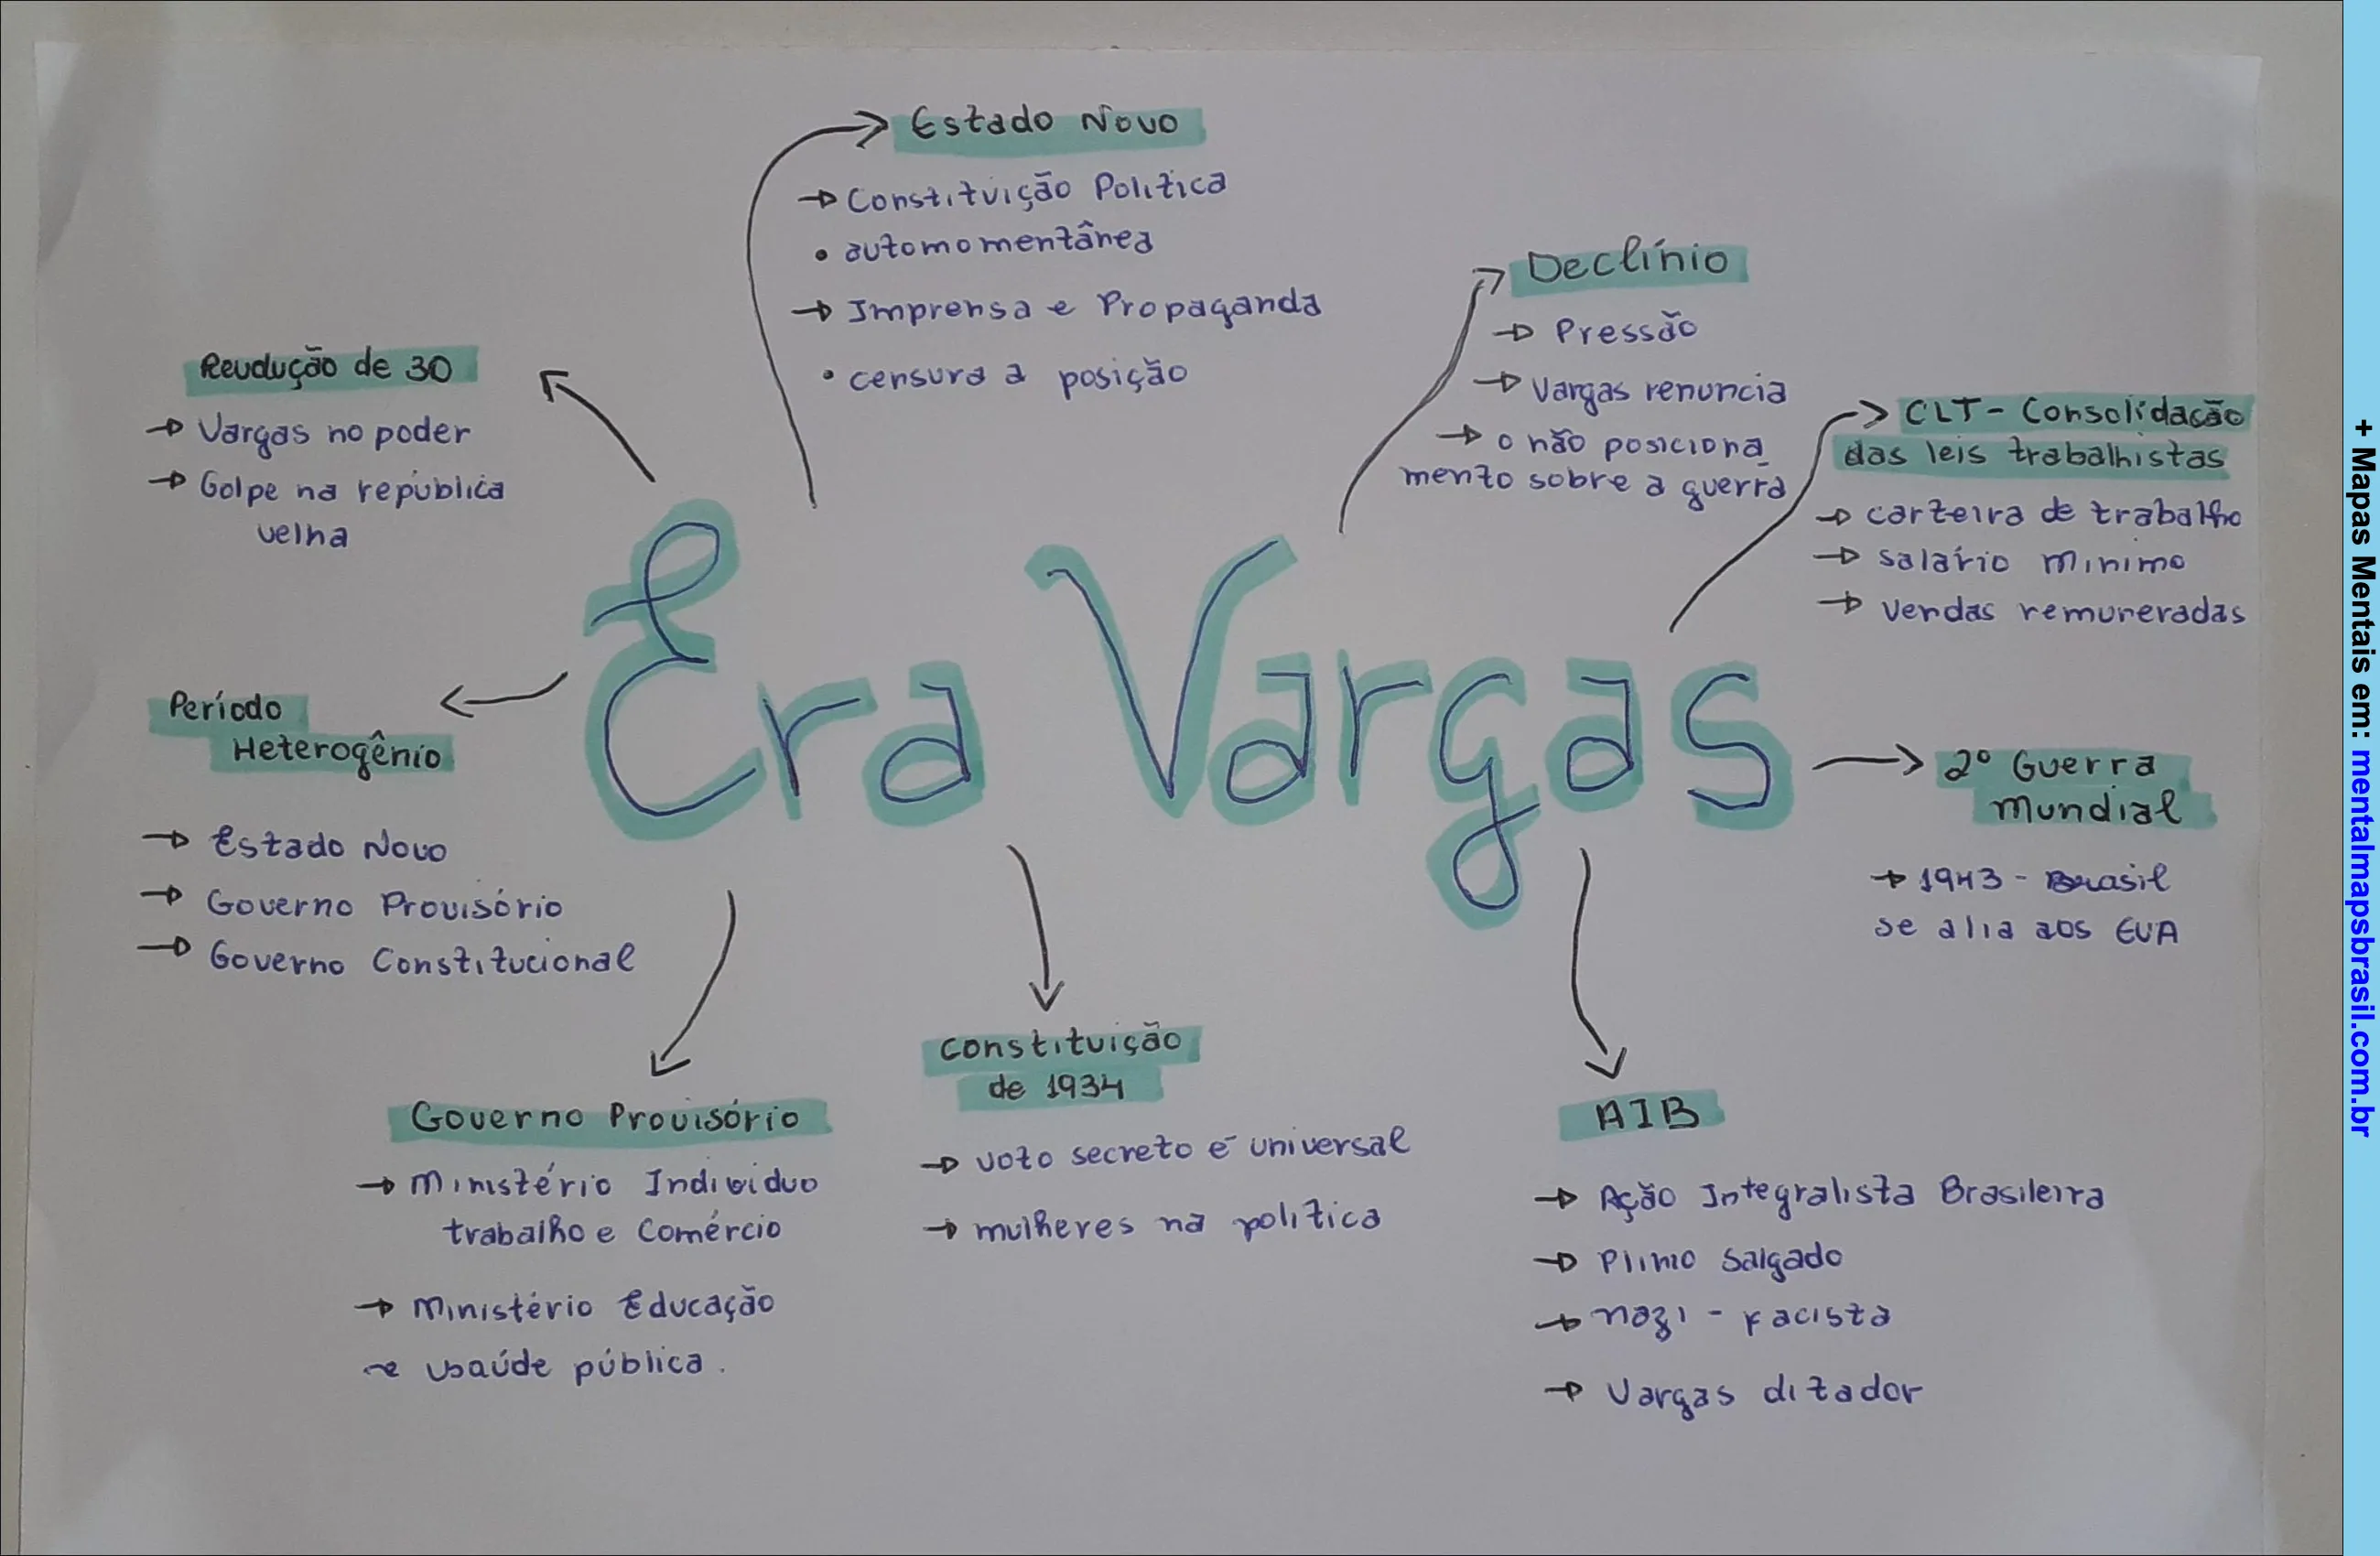 Estado Novo
→ Constituição Política
• automomentânea
→ Imprensa e Propaganda
• censura a posição
Declínio
→ Pressão
→ Vargas renuncia
→ o não posiciona
mento sobre a guerra
Revdução de 30
→ Vargas no poder
→ Golpe na república
velha
CLT - Consolidação
das leis trabalhistas
→ carteira de trabalho
→ salário mínimo
→ vendas remuneradas
Era Vargas
Período
Heterogênio
→ Estado Novo
→ Governo Provisório
→ Governo Constitucional
2º Guerra
Mundial
→ 1943 - Brasil
se alia aos EUA
Governo Provisório
→ Ministério Individuo
trabalho e Comércio
→ Ministério Educação
e saúde pública.
Constituição
de 1934
→ voto secreto e universal
→ mulheres na política
AIB
→ Ação Integralista Brasileira
→ Plinio Salgado
→ nazi - facista
→ Vargas ditador
+ Mapas Mentais em: mentalmapsbrasil.com.br